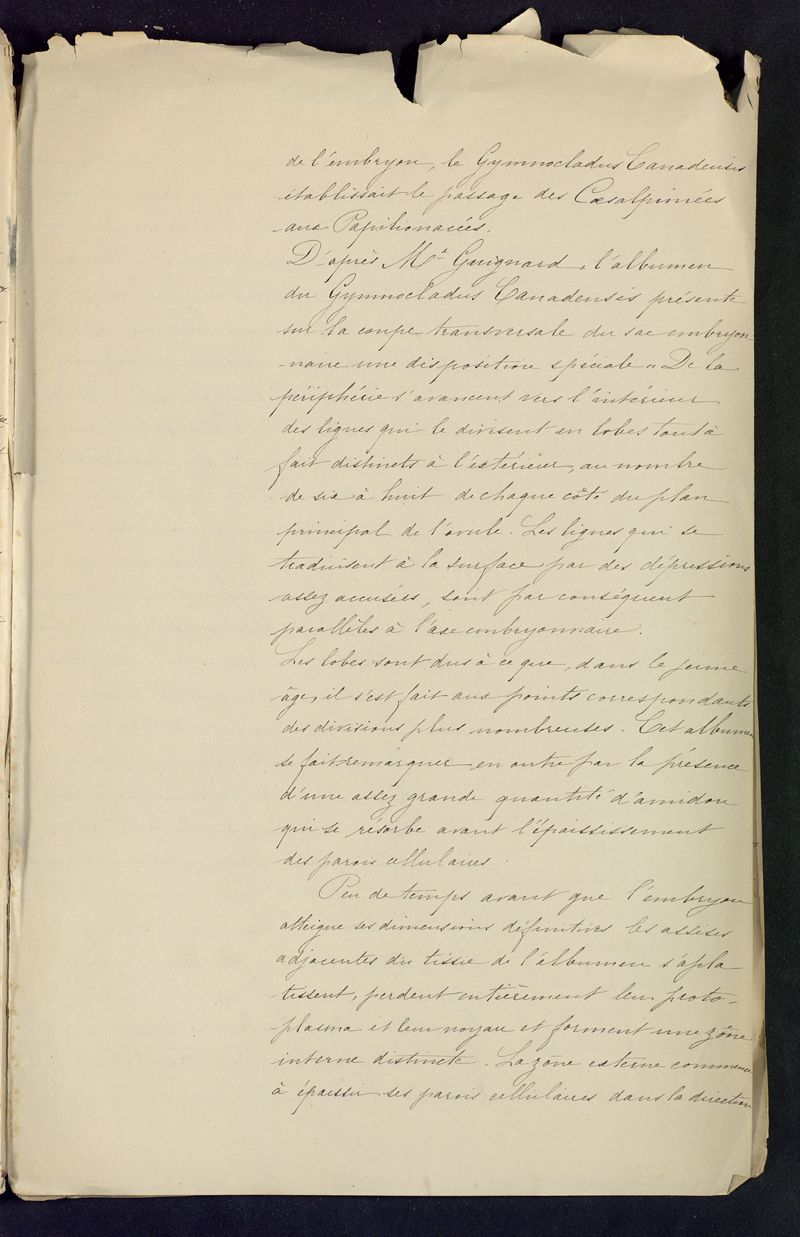 de l'embryon, le Gymnocladus Canadensis
établissait le passage des Cœsalpiniées
aux Papilionacées.
D'après Mr Guignard, l'albumen
du Gymnocladus Canadensis présente
sur la coupe transversale du sac embryon-
-naire une disposition spéciale « De la
périphérie s'avancent vers l'intérieur
des lignes qui le divisent en lobes tout à
fait distincts à l'extérieur, au nombre
de six à huit de chaque côté du plan
principal de l'ovule. Les lignes qui se
traduisent à la surface par des dépressions
assez accusées, sont par conséquent
parallèles à l'axe embryonnaire.
Les lobes sont dus à ce que, dans le jeune
âge, il s'est fait aux points correspondants
des divisions plus nombreuses. Cet albumen
se fait remarquer en outre par la présence
d'une assez grande quantité d'amidon
qui se résorbe avant l'épaississement
des parois cellulaires.
Peu de temps avant que l'embryon
atteigne ses dimensions définitives les assises
adjacentes du tissu de l'albumen s'apla-
tissent, perdent entièrement leur proto-
-plasma et leur noyau et forment une zône
interne distincte. La zône externe commence
à épaissir ses parois cellulaires dans la direction